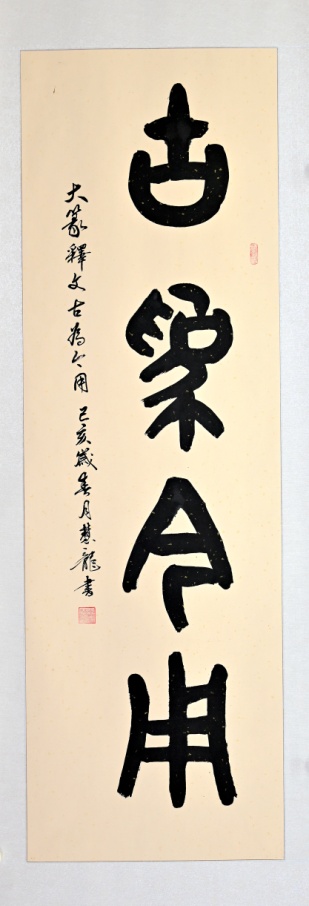 古為今用
大篆釋文古為今用己亥歲春月慧龍書